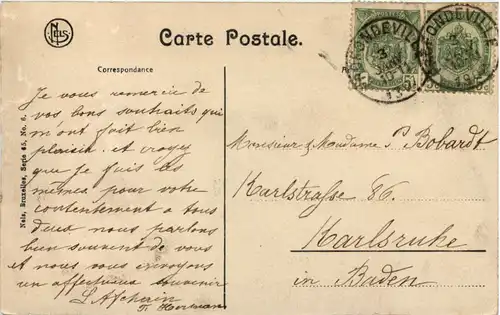 Nels
Carte Postale.
Correspondance
Nels, Bruxelles, Serie 45, No. 6.
PROFONDEVILLE
PROFONDEVILLE
Je vous remercie de
vos bons souhaits qui
m ont fait bien
plaisir. et croyez
que je fais les
mêmes pour votre
contentement a tous
deux nous parlons
bien souvent de vous
et nous vous envoyons
un affectueux souvenir
Monsieur & Madame P Bobardt
Karlstrasse 86.
Karlsruhe
in Baden